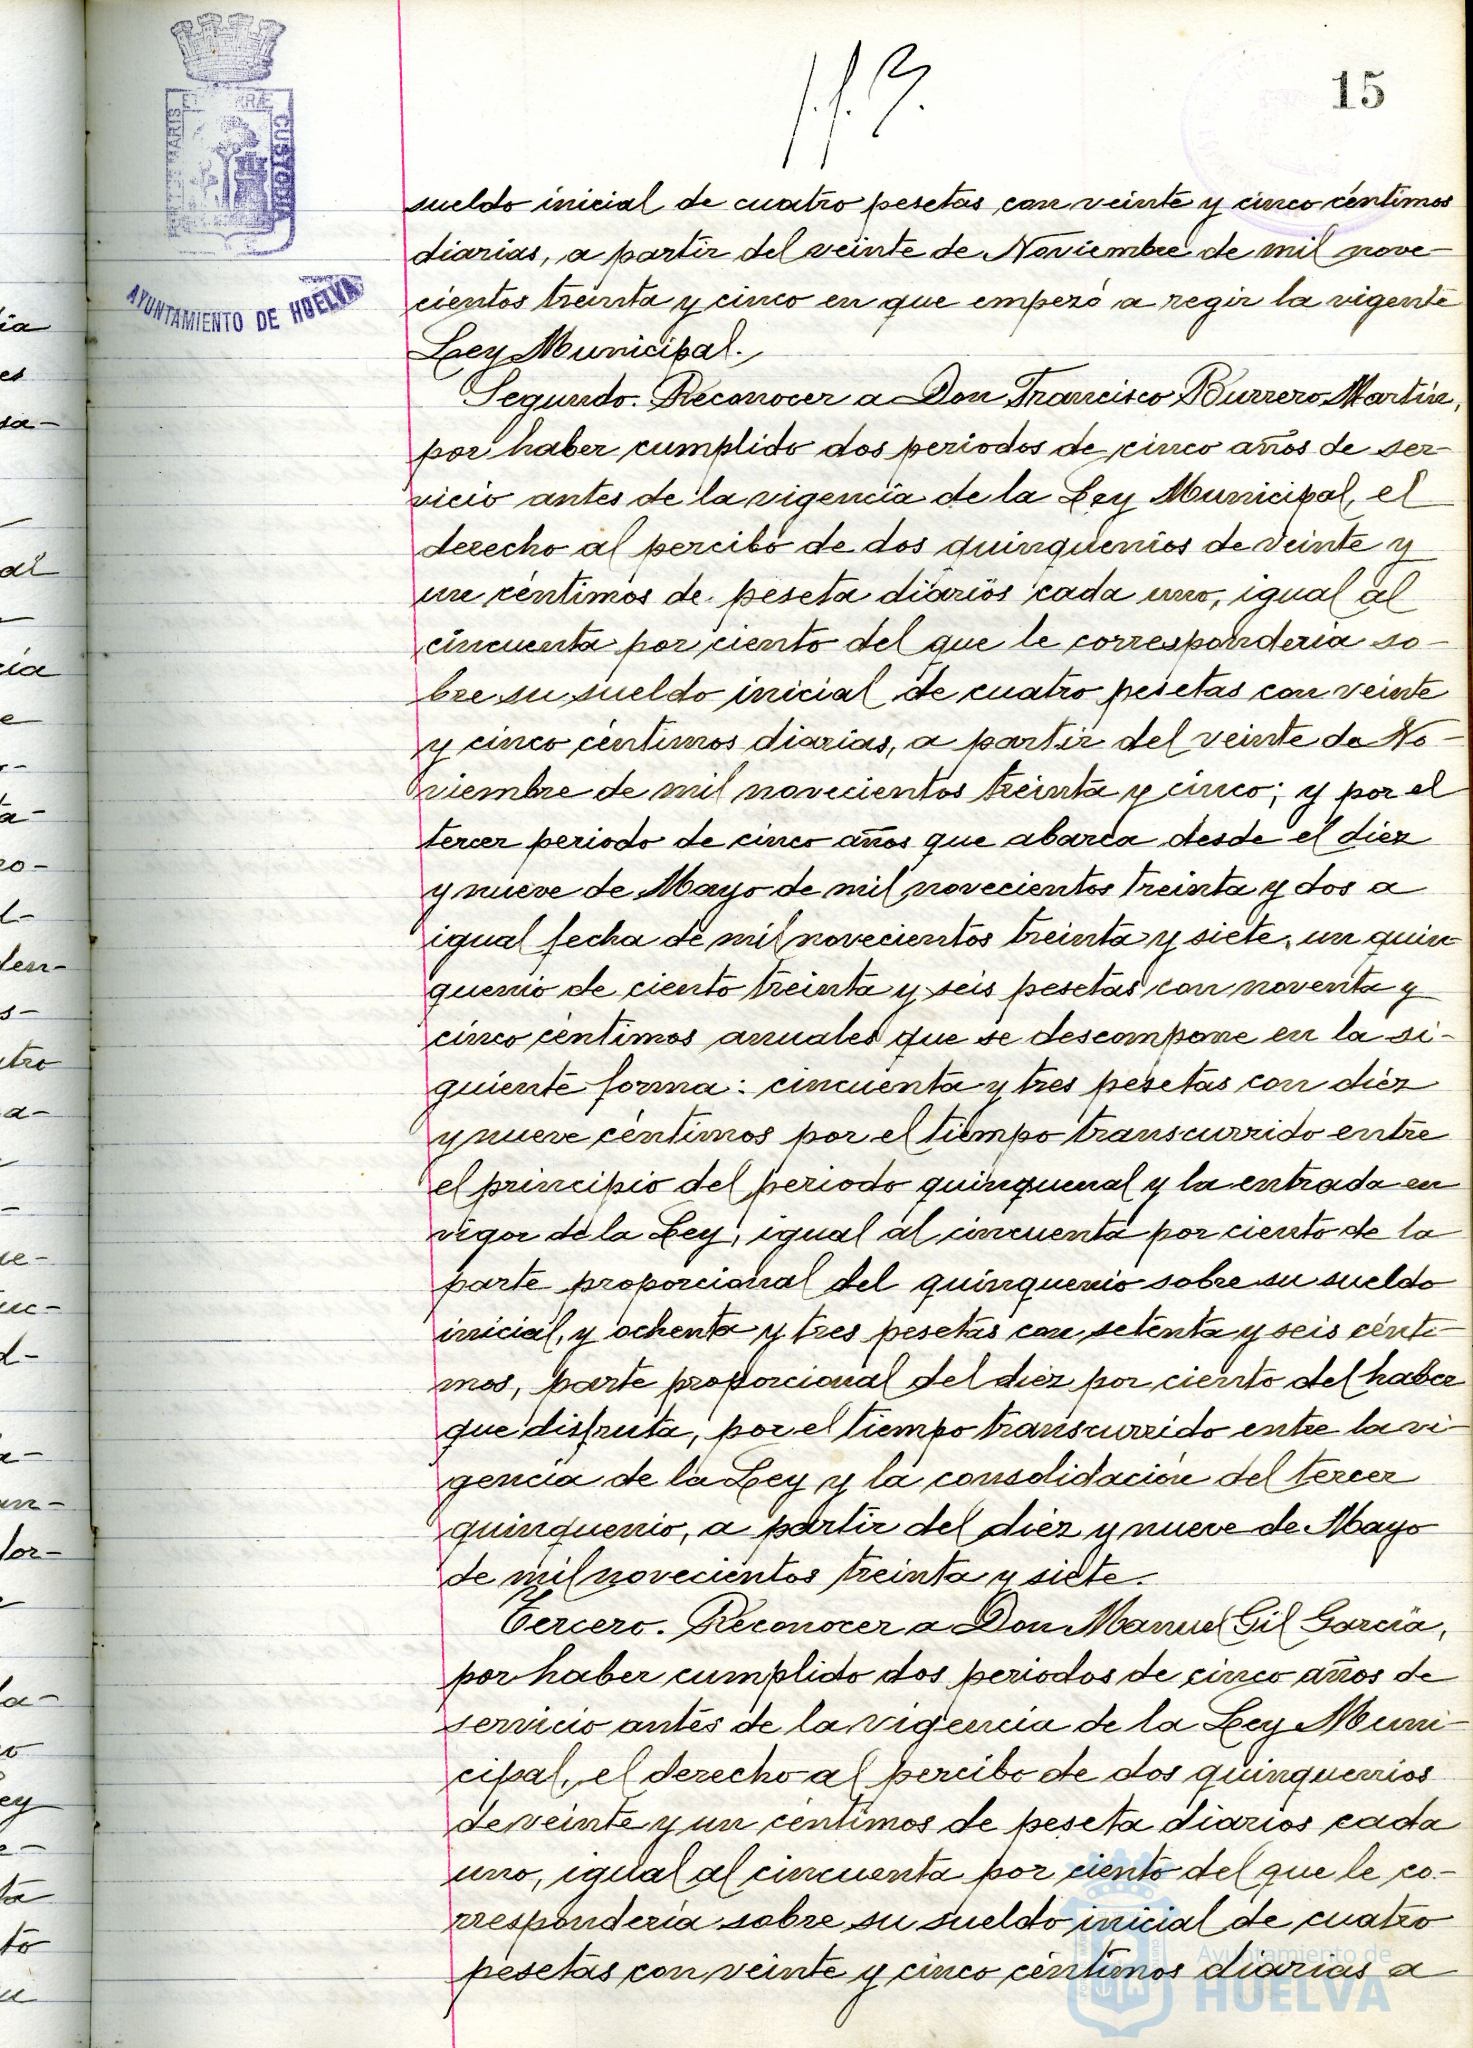 15
sueldo inicial de cuatro pesetas con veinte y cinco céntimos
diarias, a partir del veinte de Noviembre de mil nove-
cientos treinta y cinco en que empezó a regir la vigente
Ley Municipal.
Segundo. Reconocer a Don Francisco Burrero Martín,
por haber cumplido dos periodos de cinco años de ser-
vicio antes de la vigencia de la Ley Municipal, el
derecho al percibo de dos quinquenios de veinte y
un céntimos de peseta diarios cada uno, igual al
cincuenta por ciento del que le correspondería so-
bre su sueldo inicial de cuatro pesetas con veinte
y cinco céntimos diarias, a partir del veinte de No-
viembre de mil novecientos treinta y cinco; y por el
tercer periodo de cinco años que abarca desde el diez
y nueve de Mayo de mil novecientos treinta y dos a
igual fecha de mil novecientos treinta y siete, un quin-
quenio de ciento treinta y seis pesetas con noventa y
cinco céntimos anuales que se descompone en la si-
guiente forma: cincuenta y tres pesetas con diez
y nueve céntimos por el tiempo transcurrido entre
el principio del periodo quinquenal y la entrada en
vigor de la Ley, igual al cincuenta por ciento de la
parte proporcional del quinquenio sobre su sueldo
inicial, y ochenta y tres pesetas con setenta y seis cénti-
mos, parte proporcional del diez por ciento del haber
que disfruta, por el tiempo transcurrido entre la vi-
gencia de la Ley y la consolidación del tercer
quinquenio, a partir del diez y nueve de Mayo
de mil novecientos treinta y siete.
Tercero. Reconocer a Don Manuel Gil García,
por haber cumplido dos periodos de cinco años de
servicio antes de la vigencia de la Ley Muni-
cipal, el derecho al percibo de dos quinquenios
de veinte y un céntimos de peseta diarios cada
uno, igual al cincuenta por ciento del que le co-
rrespondería sobre su sueldo inicial de cuatro
pesetas con veinte y cinco céntimos diarias a
AYUNTAMIENTO DE HUELVA
MARIS
CUSTODIA
Ayuntamiento de
HUELVA